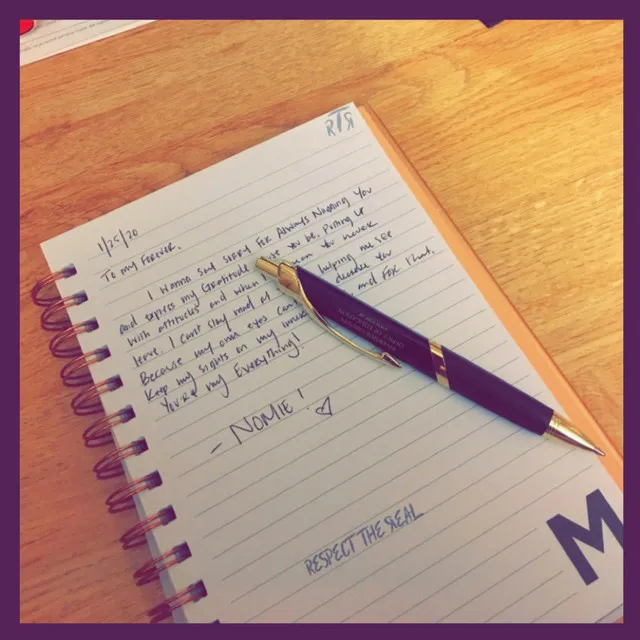 RTR
1/25/20
To my Forever,
I wanna say sorry For Always Nagging You
and express my Gratitude you be. Putting up
with attitudes and when you never
leave. I can't stay mad at helping me see
Because my own eyes can't
keep my sights on my and For that,
You're my Everything!
- NOMIE!
RESPECT THE REAL
M